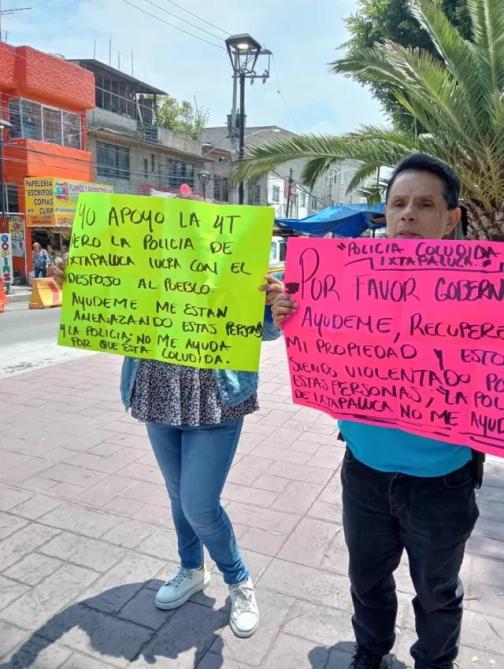 PAPELERIA
ESCRITOS
COPIAS
CURP
YO APOYO LA 4T
PERO LA POLICIA DE
IXTAPALUCA LUCRA CON EL
DESPOJO AL PUEBLO.
AYUDEME ME ESTAN
AMENAZANDO ESTAS PERSONAS
Y LA POLICIA NO ME AYUDA
POR QUE ESTA COLUDIDA.
"POLICIA COLUDIDA
IXTAPALUCA."
POR FAVOR GOBERN
AYUDEME, RECUPERE
MI PROPIEDAD Y ESTO
SIENDS VIOLENTADO PO
ESTAS PERSONAS, Y LA POL
DE IXTAPALUCA NO ME AYUD